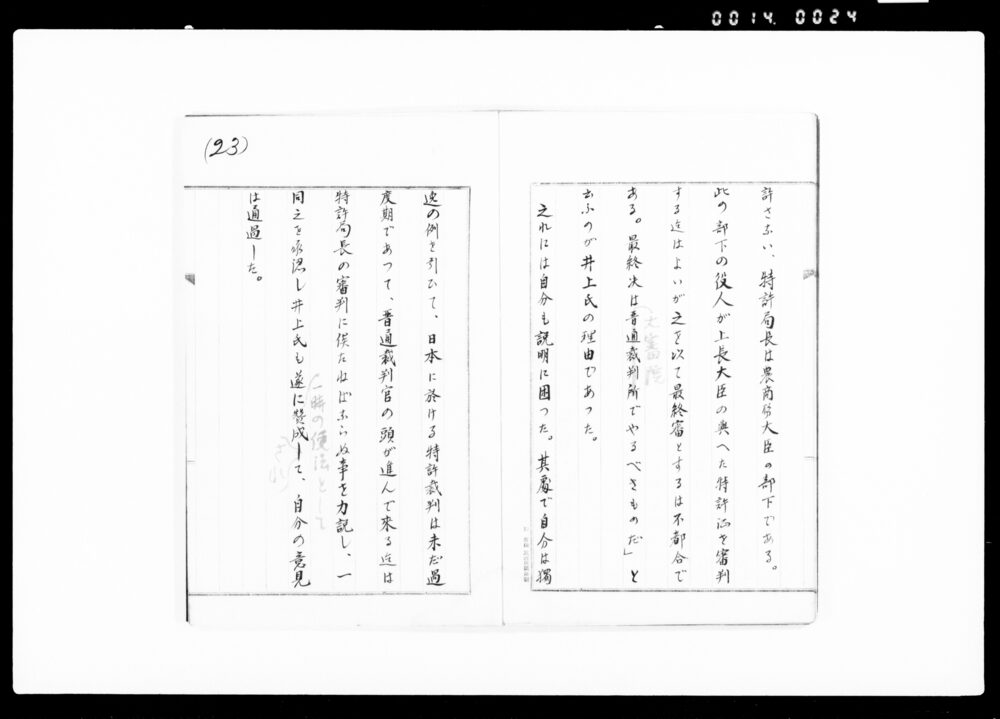 0014. 0024
許さない、特許局長は農商務大臣の部下である。
此の部下の役人が上長大臣の與へた特許證を審判
する迄はよいが之を以て最終審とするは不都合で
ある。最終決は普通裁判所でやるべきものだ」と
云ふのが井上氏の理由であった。
之れには自分も説明に困った。其處で自分は獨
(大審院
(23)
逸の例を引ひて、日本に於ける特許裁判は未だ過
度期であつて、普通裁判官の頭が進んで来る迄は
特許局長の審判に俟たねばならぬ事を力説し、一
(一時の便法として
同之を承認し井上氏も遂に賛成して、自分の意見
は通過した。